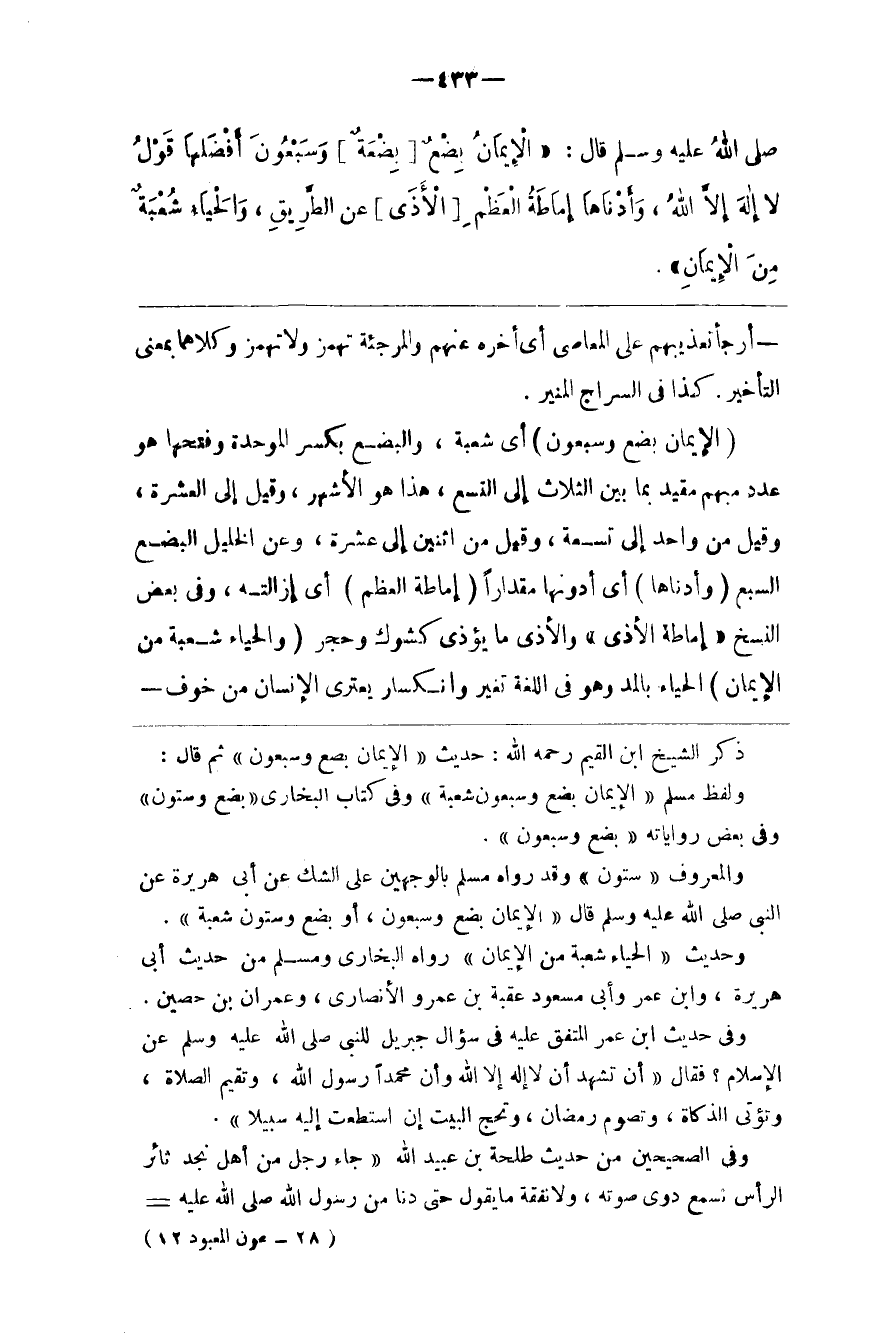 —٤٣٣—
صلى اللهُ عليه وسلم قال : « الْإِيمَانُ بِضْعٌ [ بِضْعَةٌ ] وَسَبْعُونَ أَفْضَلهاَ قَوْلُ
لا إِلٰهَ إِلاَّ اللهُ ، وَأَدْنَاهاَ إِماَطَةُ الْعَظْمِ [ الْأَذَى ] عن الطَّرِيقِ ، وَالْحَياَء شُعْبَةٌ
مِنَ الْإِيمَانِ» .
— أرجأ تعذيبهم على المعاصى أى أخره عنهم والمرجئة تهمز ولا تهمز وكلاهما بمعنى
التأخير . كذا فى السراج المنير .
( الإيمان بضع وسبعون ) أى شعبة ، والبضع بكسر الموحدة وفتحها هو
عدد مبهم مقيد بما بين الثلاث إلى التسع ، هذا هو الأشهر ، وقيل إلى العشرة ،
وقيل من واحد إلى تسعة ، وقيل من اثنين إلى عشرة ، وعن الخليل البضع
السبع ( وأدناها ) أى أدونها مقداراً ( إماطة العظم ) أى إزالته ، وفى بعض
النسخ « إماطة الأذى » والأذى ما يؤذى كشوك وحجر ( والحياء شعبة من
الإيمان ) الحياء بالمد وهو فى اللغة تغير وانكسار يعترى الإنسان من خوف —
ذكر الشيخ ابن القيم رحمه الله : حديث « الإيمان بضع وسبعون » ثم قال :
ولفظ مسلم « الإيمان بضع وسبعون شعبة » وفى كتاب البخارى «بضع وستون»
وفى بعض رواياته « بضع وسبعون » .
والمعروف « ستون » وقد رواه مسلم بالوجهين على الشك عن أبى هريرة عن
النبى صلى الله عليه وسلم قال « الإيمان بضع وسبعون ، أو بضع وستون شعبة » .
وحديث « الحياء شعبة من الإيمان » رواه البخارى ومسلم من حديث أبى
هريرة ، وابن عمر وأبى مسعود عقبة بن عمرو الأنصارى ، وعمران بن حصين .
وفى حديث ابن عمر المتفق عليه فى سؤال جبريل للنبى صلى الله عليه وسلم عن
الإسلام ؟ فقال « أن تشهد أن لا إله إلا الله وأن محمداً رسول الله ، وتقيم الصلاة ،
وتؤتى الذكاة ، وتصوم رمضان ، وتحج البيت إن استطعت إليه سبيلا » .
وفى الصحيحين من حديث طلحة بن عبيد الله « جاء رجل من أهل نجد ثائر
الرأس نسمع دوى صوته ، ولا نفقة مايقول حتى دنا من رسول الله صلى الله عليه =
( ٢٨ – عون المعبود ١٢ )